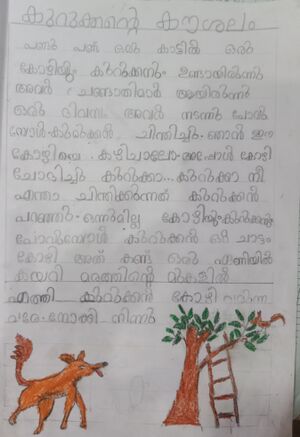 കുറുക്കന്റെ കൗശലം
പണ്ട് പണ്ട് ഒരു കാട്ടിൽ ഒരു
കോഴിയും കുറുക്കനും ഉണ്ടായിരുന്നു
അവർ ചങ്ങാതിമാർ ആയിരുന്നു
ഒരു ദിവസം അവർ നടന്നു പോവു
മ്പോൾ കുറുക്കൻ ചിന്തിച്ചു. ഞാൻ ഈ
കോഴിയെ കഴിച്ചാലോ അപ്പോൾ കോഴി
ചോദിച്ചു കുറുക്കാ.. കുറുക്കാ നീ
എന്താ ചിന്തിക്കുന്നത് കുറുക്കൻ
പറഞ്ഞു. ഒന്നുമില്ല കോഴിയും കുറുക്കനും
പോവുമ്പോൾ കുറുക്കൻ ഒരു ചാട്ടം
കോഴി അത് കണ്ട് ഒരു ഏണിയിൽ
കയറി മരത്തിന്റെ മുകളിൽ
എത്തി കുറുക്കൻ കോഴി
വരെ നോക്കി നിന്നു